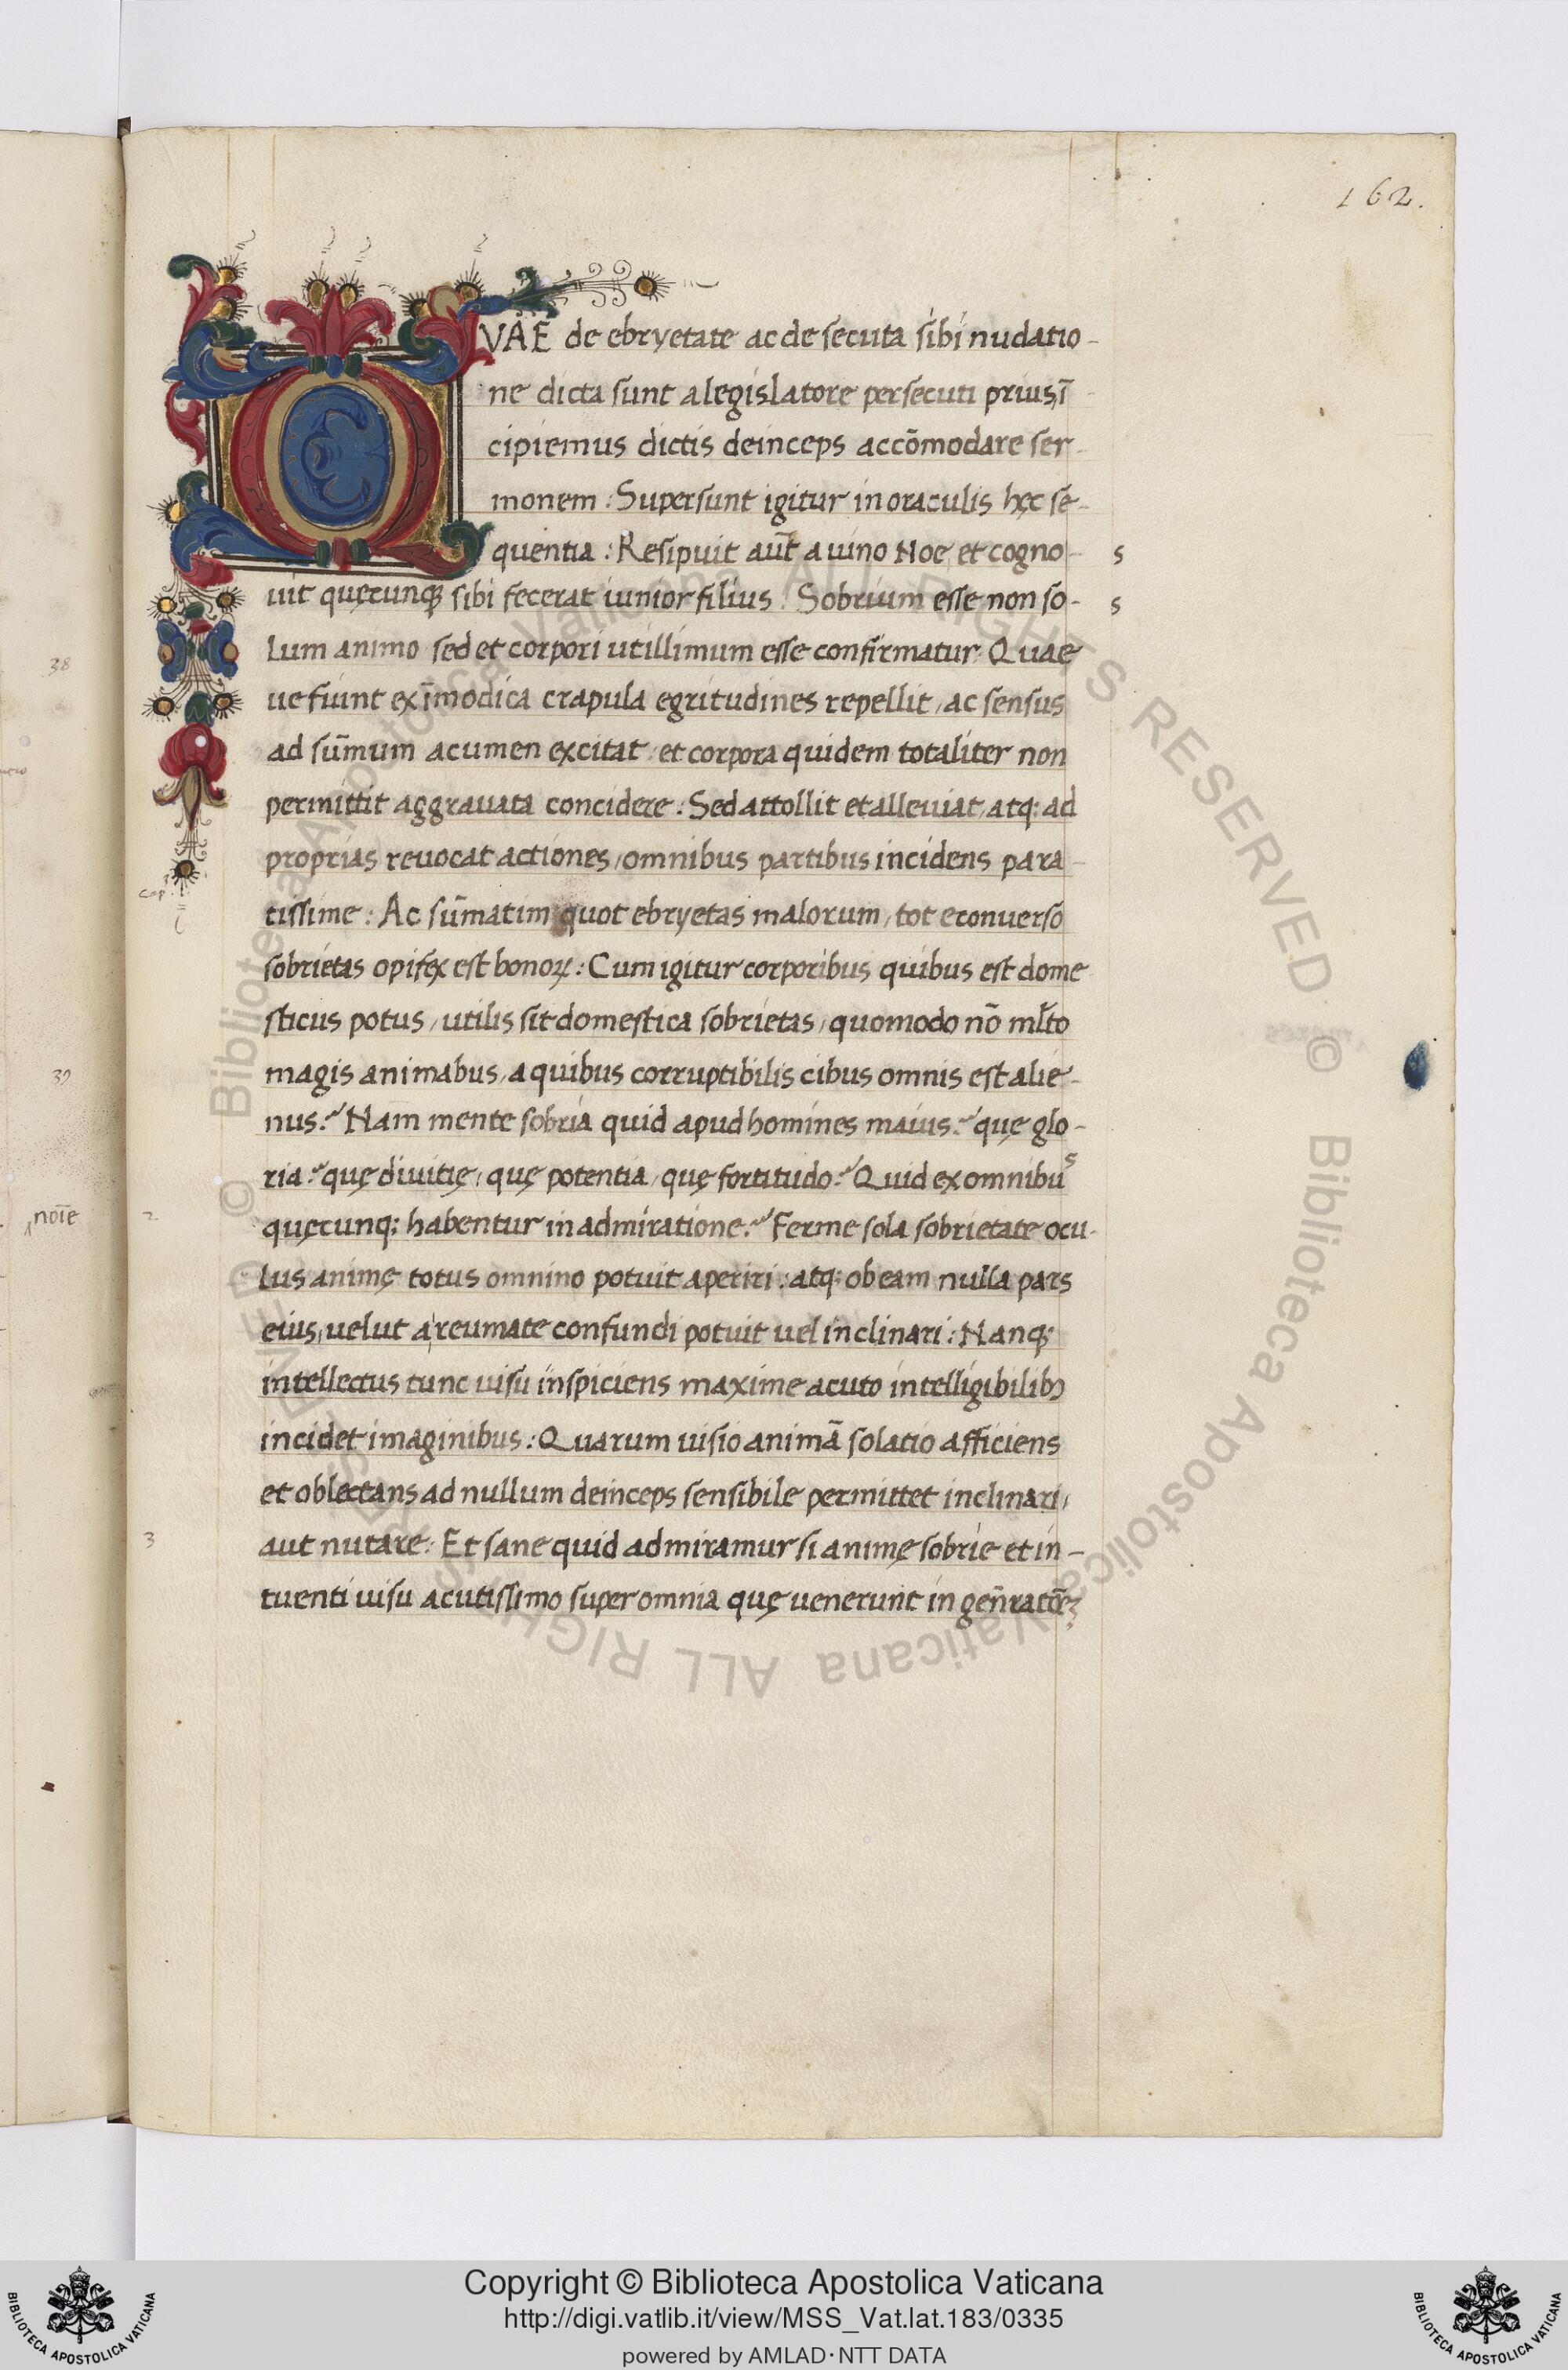 162.
QVAE de ebryetate ac de secuta sibi nudatio-
ne dicta sunt a legislatore persecuti prius, ī
cipiemus dictis deinceps accōmodare ser-
monem : Supersunt igitur in oraculis hęc se-
quentia : Resipuit aūt a uino Noe, et cogno-
s
uit quęcunq sibi fecerat iunior filius : Sobrium esse non so-
s
lum animo sed et corpori utillimum esse confirmatur. Quae
ue fiunt ex īmodica crapula egritudines repellit, ac sensus
ad sūmum acumen excitat, et corpora quidem totaliter non
permittit aggrauata concidere : Sed attollit et alleuiat, atq: ad
proprias reuocat actiones, omnibus partibus incidens para-
cap. 1
tissime : Ac sūmatim quot ebryetas malorum, tot econuerso
sobrietas opifex est bonoꝝ : Cum igitur corporibus quibus est dome
sticus potus, utilis sit domestica sobrietas, quomodo nō ml̄to
magis animabus, a quibus corruptibilis cibus omnis est alie-
nus? Nam mente sobria quid apud homines maius? quę glo-
ria? quę diuitię, quę potentia, quę fortitudo? Quid ex omnibus
2 quęcunq: habentur in admiratione? Ferme sola sobrietate ocu-
lus animę totus omnino potuit aperiri : atq: ob eam nulla pars
eius, uelut a reumate confundi potuit uel inclinari : Nanq:
intellectus tunc uisu inspiciens maxime acuto intelligibilibꝰ
incidet imaginibus : Quarum uisio animā solatio afficiens
et oblectans ad nullum deinceps sensibile permittet inclinari,
3 aut nutare : Et sane quid admiramur si animę sobrie et in-
tuenti uisu acutissimo super omnia quę uenerunt in gen̄ratōē?
38
39
noīe
© Biblioteca Apostolica Vaticana ALL RIGHTS RESERVED © Biblioteca Apostolica Vaticana ALL RIGHTS RESERVED
Copyright © Biblioteca Apostolica Vaticana
http://digi.vatlib.it/view/MSS_Vat.lat.183/0335
powered by AMLAD·NTT DATA
BIBLIOTECA APOSTOLICA VATICANA
BIBLIOTECA APOSTOLICA VATICANA